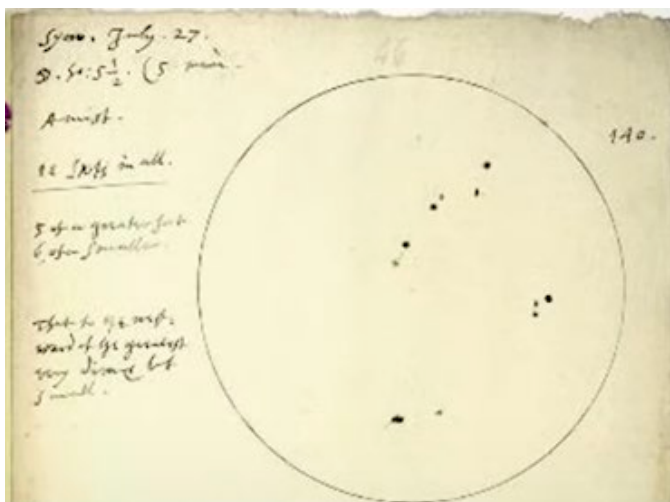 Syon. July. 27.
ho: 5 1/2. (5
46
A mist.
140.
in all.
5 of a greater sort
6, of a smaller.
That to the west
ward of the greatest
very but
small.